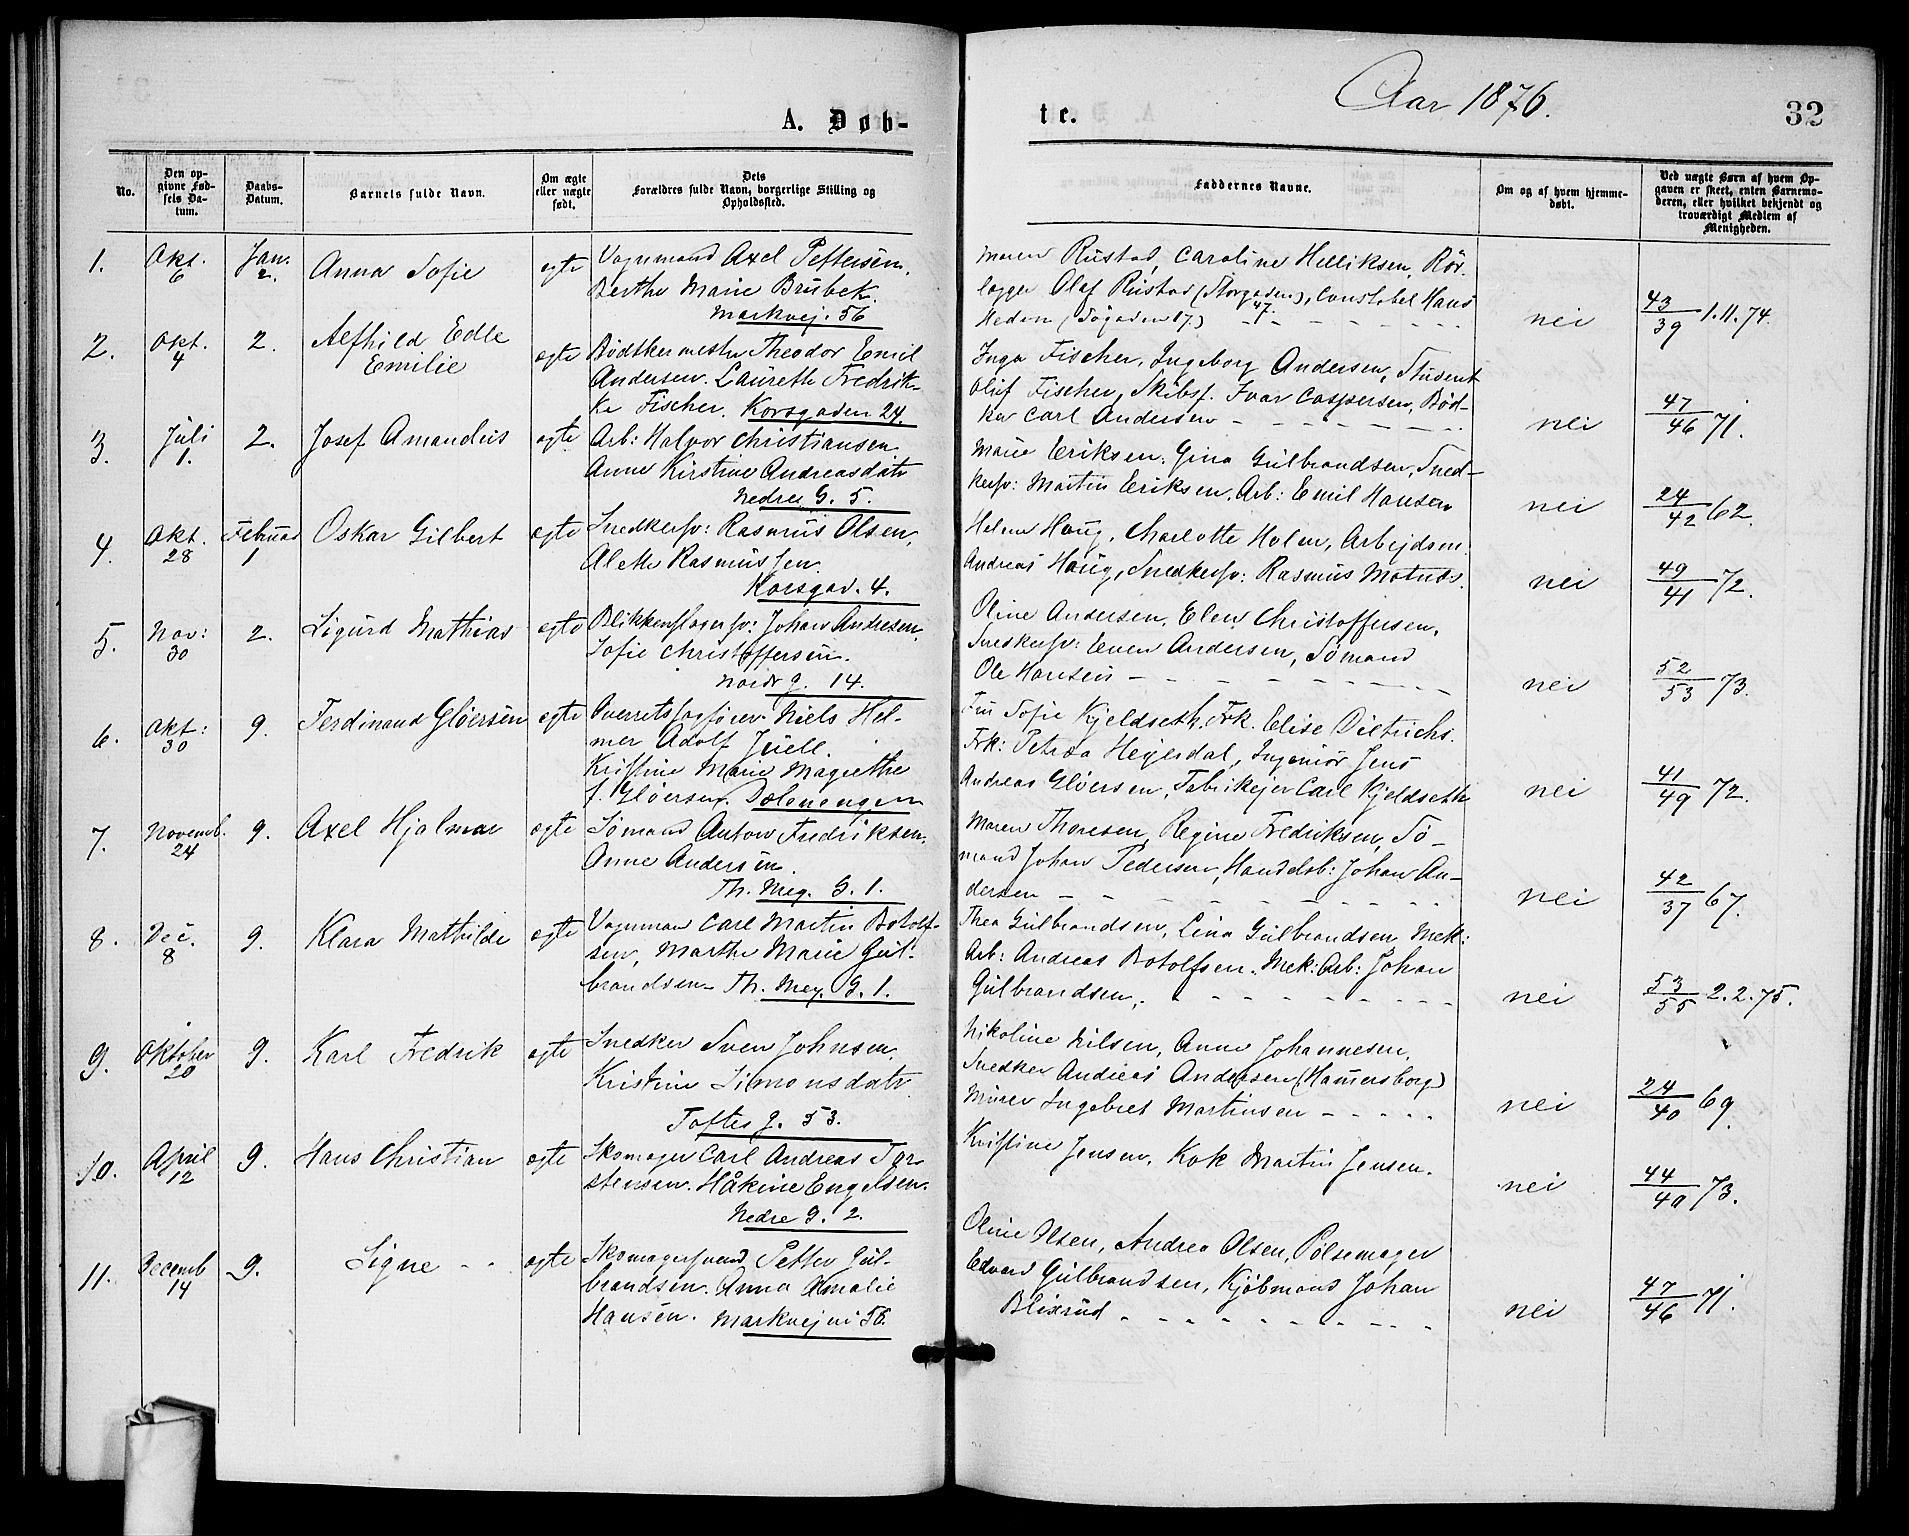 A. Døb-
te.
Aar 1876.
32
No.
Den op-
givne Fød-
sels Da-
tum.
Daabs-
Datum.
Barnets fulde Navn.
Om ægte
eller uægte
født.
Dets
Forældres fulde Navn, borgerlige Stilling og
Opholdssted.
Faddernes Navne.
Om og af hvem hjemme-
døbt.
Ved uægte Børn af hvem Op-
gaven er skeet, enten Barnemo-
deren, eller hvilket bekjendt og
troværdigt Medlem af
Menigheden.
1. Okt. 6 Jan. 2. Anna Sofie ægte
Vognmand Axel Pettersen.
Berthe Marie Brubek.
Markvej. 56
Maren Rustad, Caroline Helliksen, Rør-
lægger Olaf Rustad (Storgaden 47), Constabel Hans
Heden (Søgaden 17)
nei 43/39 1.11.74.
2. Okt. 4 2. Alfhild Edle
Emilie ægte
Bødtkermester Theodor Emil
Andersen. Laurethe Fredrik-
ke Fischer. Korsgaden 24.
Inga Fischer, Ingeborg Andersen, Student
Oluf Fischer, Skibsf. Ivar Caspersen, Bød-
ker Carl Andersen
nei 47/46 71.
3. Juli 1. 2. Josef Amandus ægte
Arb: Halvor Christiansen
Anne Kirstine Andreasdatr
Nedre G. 5.
Marie Eriksen. Gina Gulbrandsen, Sned-
kersv: Martin Eriksen. Arb: Emil Hansen
nei 24/42 62.
4. Okt. 28 Februar 1 Oskar Gilbert ægte
Snedkersv: Rasmus Olsen,
Alette Rasmussen.
Korsgad. 4.
Helene Haug, Charlotte Holm, Arbejdsm.
Andreas Haug, Snedkersv: Rasmus
nei 49/41 72.
5. Nov: 30 2. Sigurd Mathias ægte
Blikkenslagersv: Johan Andresen,
Sofie Christoffersen.
Nordr g. 14.
Oline Andersen, Elen Christoffersen,
Snedkersv: Even Andersen, Sømand
Ole Hansen
nei 52/53 73.
6. Okt: 30 9. Ferdinand Gløersen ægte
Overretssagfører Niels Hel-
mer Adolf Juell.
Kristine Marie Magrethe
f. Gløersen. Dælenengen
Fru Sofie Kjeldseth. Frk. Elise Dietrichs.
Frk: Petrea Hejerdal, Ingeniør Jens
Andreas Gløersen, Fabrikejer Carl Kjeldseth
nei 41/49 72.
7. Novemb. 24 9. Axel Hjalmar ægte
Sømand Anton Fredriksen,
Anne Andersen.
Th. Mey. G. 1.
Maren Thoresen, Regine Fredriksen, Sø-
mand Johan Pedersen, Handelsb: Johan An-
dersen
nei 42/37 67.
8. Dec. 8 9. Klara Mathilde ægte
Vognman Carl Martin Botolf-
sen, Marthe Marie Gul-
brandsen. Th. Mey. G. 1.
Thea Gulbrandsen, Lina Gulbrandsen, Mek:
Arb: Andreas Botolfsen. Mek: Arb: Johan
Gulbrandsen.
nei 53/55 2.2.75.
9. Oktober 20 9. Karl Fredrik ægte
Snedker Sven Johnsen.
Kristine Simonsdatr
Toftes g. 53.
Nikoline Nilsen, Anne Johannesen,
Snedker Andreas Andersen (Hammersborg)
Murer Ingebret Martinsen
nei 24/40 69.
10. April 12 9. Hans Christian ægte
Skomager Carl Andreas Tor-
stensen. Håkine Engelsen.
Nedre G. 2.
Kristine Jensen, Kok Martin Jensen.
nei 44/40 73.
11. Decemb 14 9. Signe ægte
Skomagersvend Petter Gul-
brandsen. Anna Amalie
Hansen. Markvejen 58.
Oline Olsen, Andrea Olsen, Pølsemager
Edvard Gulbrandsen, Kjøbmand Johan
Blixrud
nei 47/46 71.